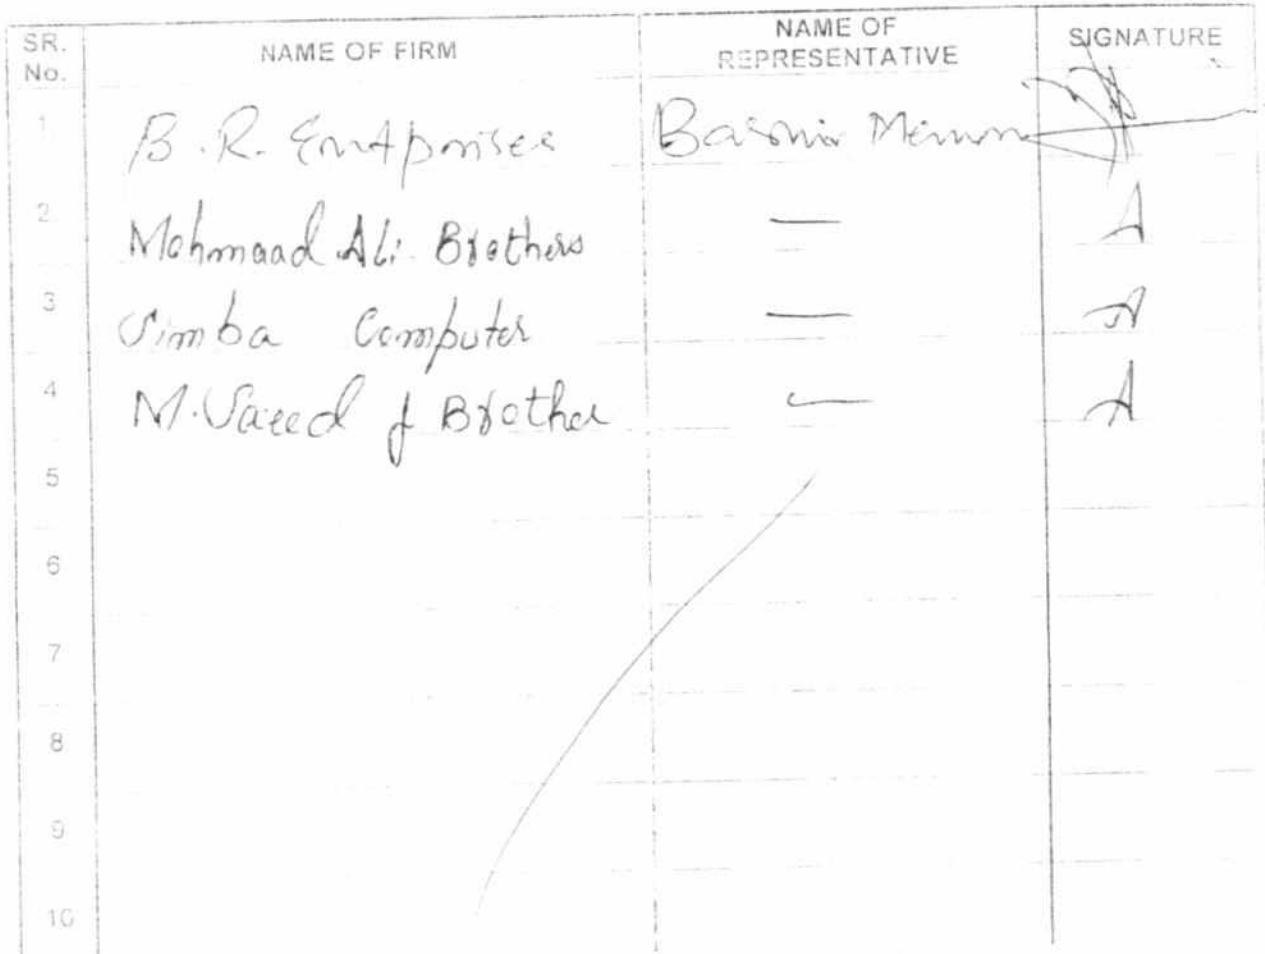 SR. No. NAME OF FIRM NAME OF REPRESENTATIVE SIGNATURE
1 B.R. Entrprises
2 Mohmaad Ali Brothers —
3 Simba Computer —
4 M. Saeed & Brother —
5
6
7
8
9
10